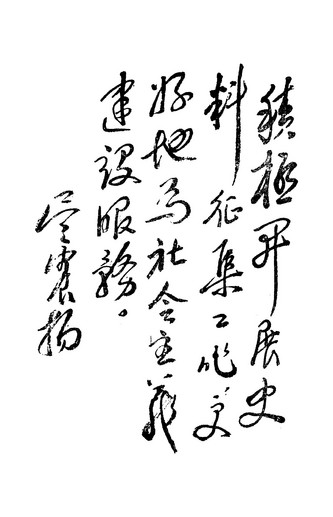 積極开展史
料征集工作更
好地为社会主義
建設服務。